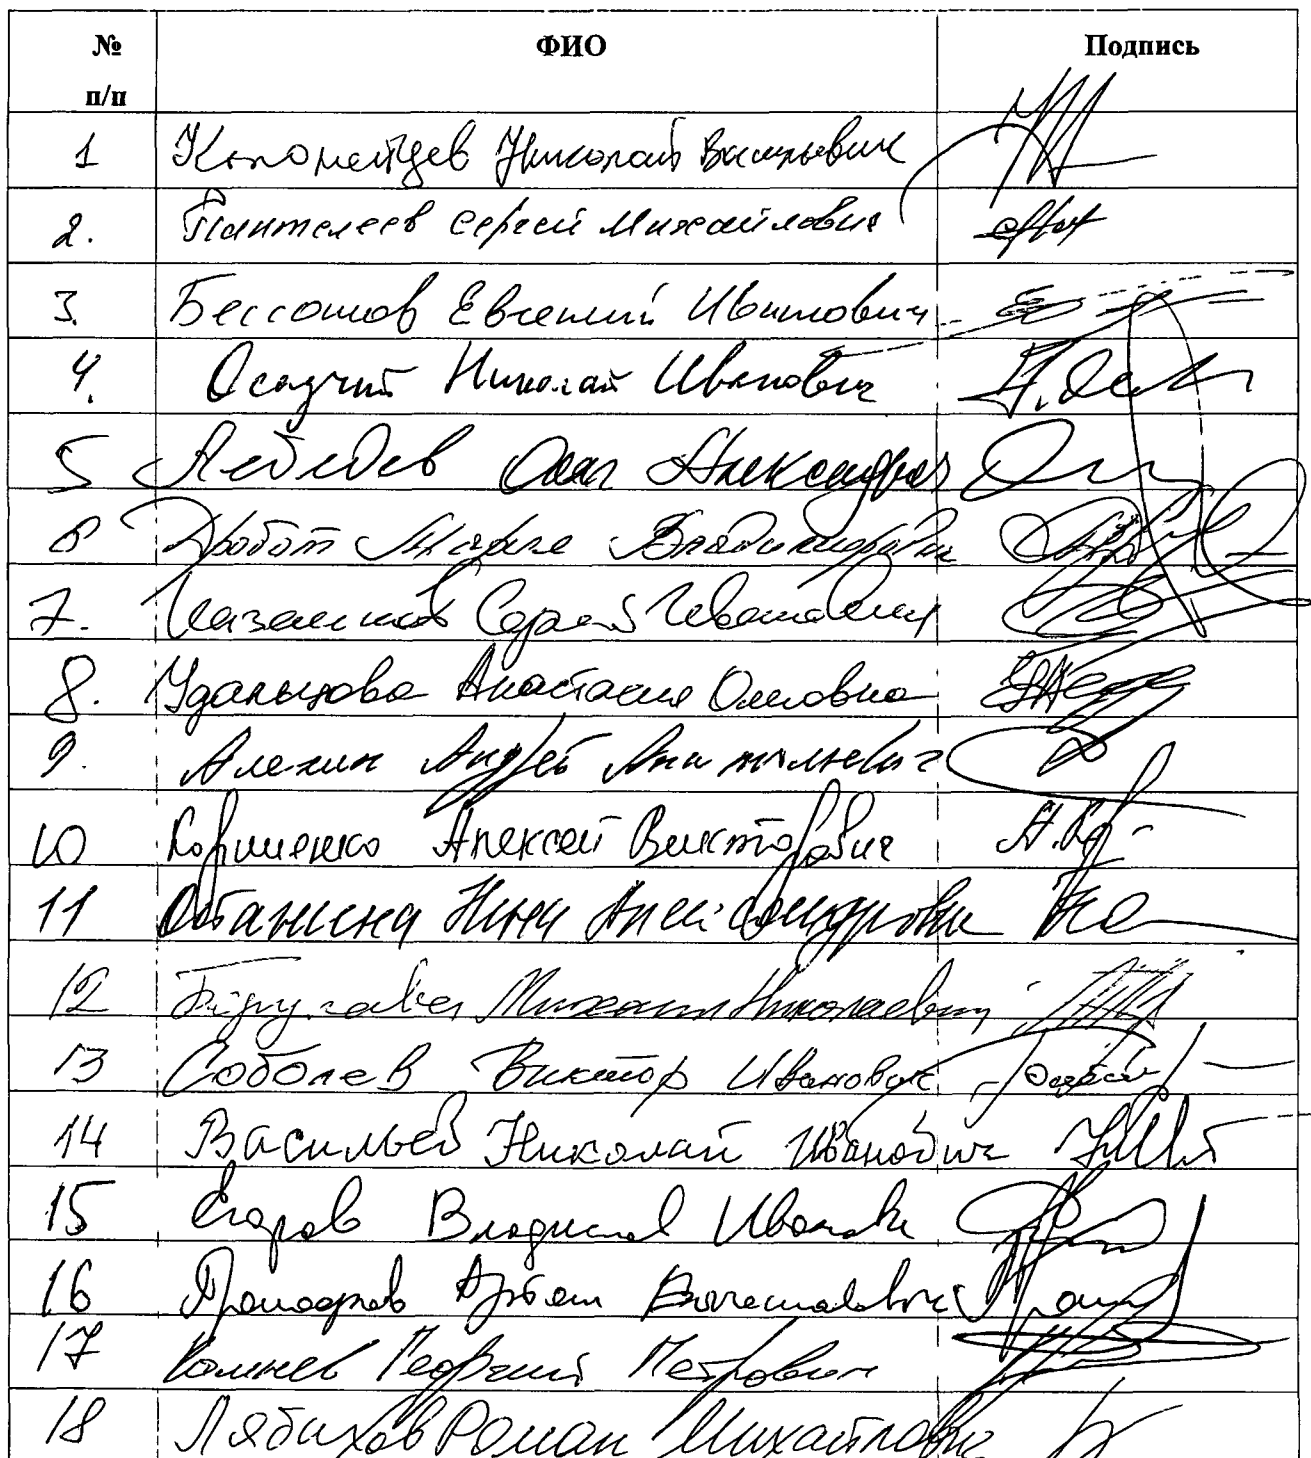 № п/п ФИО Подпись
1 Коломейцев Николай Васильевич
2. Пантелеев Сергей Михайлович
3. Бессонов Евгений Иванович
4. Осадчий Николай Иванович Н.Оса
5 Лебедев Олег Александрович
6 Дробот Мария Владимировна
7. Казанков Сергей Иванович
8. Удальцова Анастасия Олеговна
9. Алехин Андрей Анатольевич
10 Корниенко Алексей Викторович
11 Останина Нина Александровна
12 Михаил Николаевич
13 Соболев Виктор Иванович
14 Васильев Николай Иванович
15 Егоров Владислав Иванович
16 Прокофьев Артём Вячеславович
17 Камнев Георгий Петрович
18 Лябихов Роман Михайлович